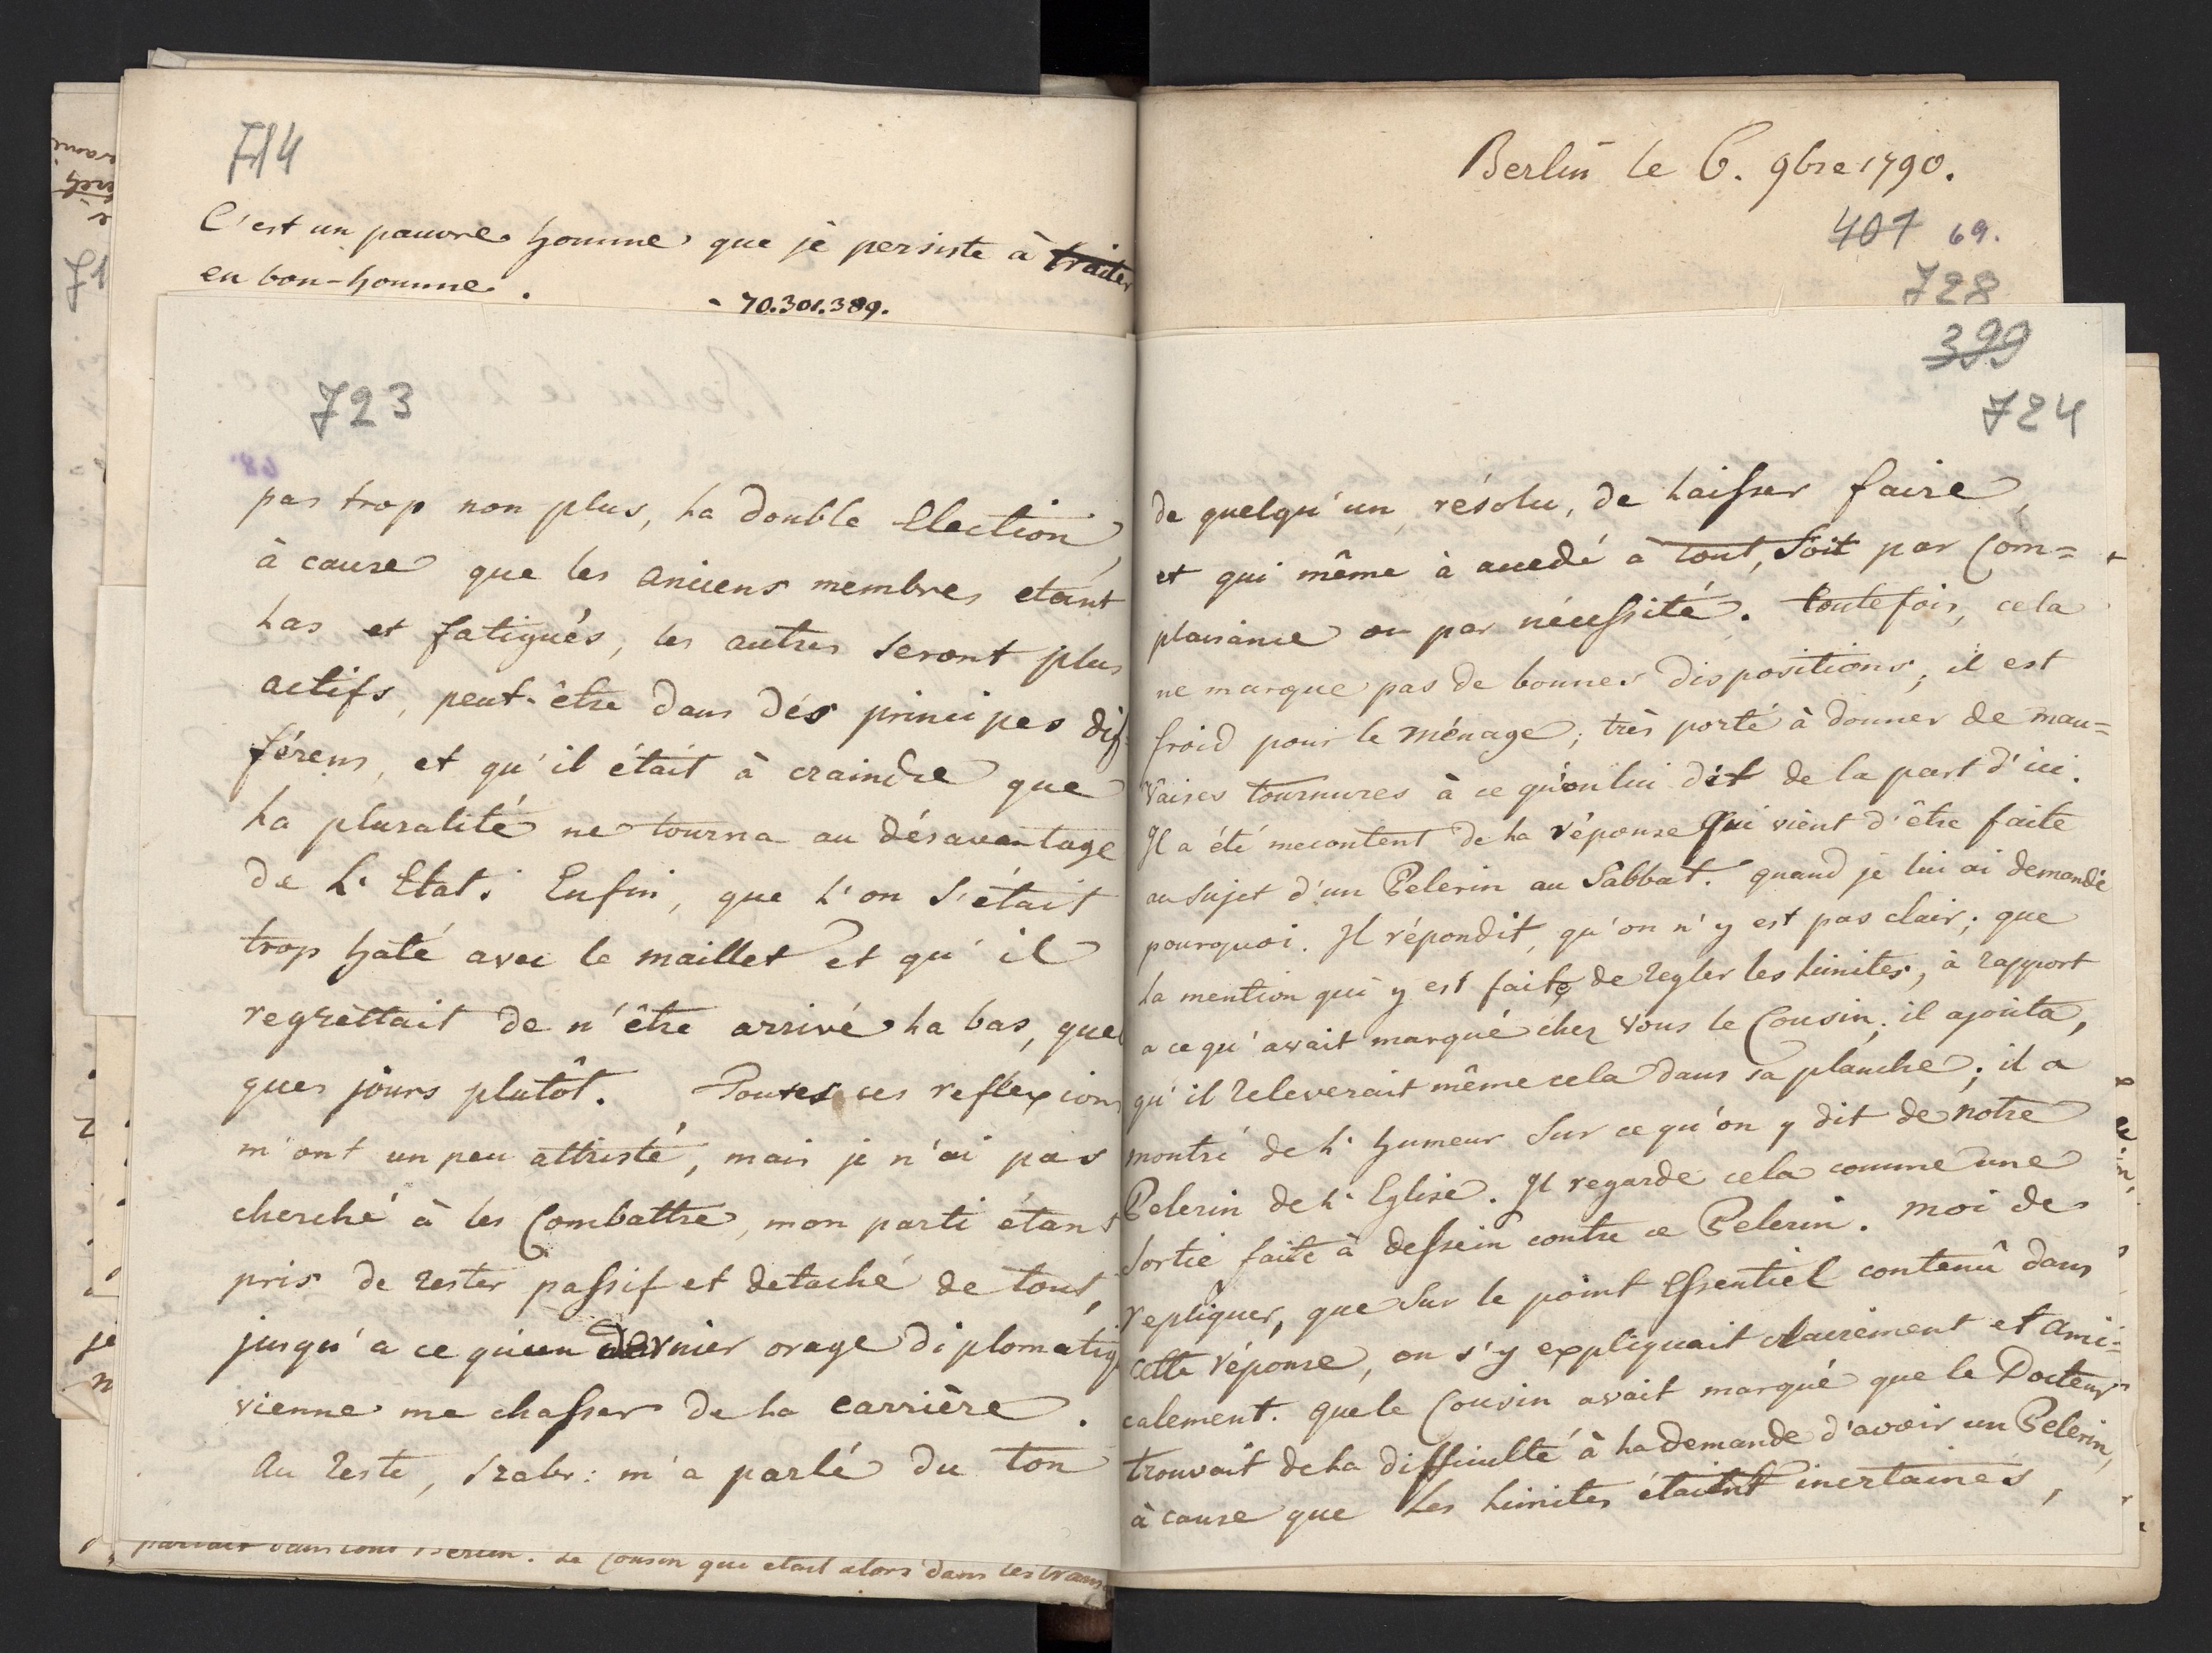 714
C'est un pauvre homme que je persiste à traiter
en bon-homme.
- 70.301.389.
723
68.
pas trop non plus, la double Election,
à cause que les anciens membres etant
las et fatigués, les autres seront plus
actifs, peut-être dans dés principes dif-
férens, et qu'il était à craindre que
la pluralité ne tourna au désavantage
de l'Etat. Enfin, que l'on s'était
trop hâté avec le maillet et qu'il
regrettait de n'être arrivé la bas, quel
ques jours plutôt. Toutes ces reflexions
m'ont un peu attristé, mais je n'ai pas
cherché à les Combattre, mon parti étant
pris de rester passif et detaché de tout,
jusqu'a ce qu'un dernier orage diplomatiq
vienne me chasser de la carrière.
Au reste, Szabr: m'a parlé du ton
parlait dans tout Berlin. Le Cousin que etait alors dans les trans
Berlin le 6. 9bre 1790.
407 69.
728
399
724
de quelqu'un, résolu, de laisser faire,
et qui même à accedé à tout, soit par Com=
plaisance ou par nécessité. toutefois, cela
ne marque pas de bonnes dispositions, il est
froid pour le ménage; très porté à donner de mau=
vaises tournures à ce qu'on lui dit de la part d'ici.
Il a été mecontent de la réponse qui vient d'être faite
au sujet d'un Pelerin au Sabbat. quand je lui ai demandé
pourquoi. Il répondit, qu'on n'y est pas clair; que
la mention qui y est faite de regler les limites, à rapport
a ce qu'avait marqué chez vous le Cousin; il ajouta,
qu'il releverait même cela dans sa planche; il a
montré de l'humeur sur ce qu'on y dit de notre
Pelerin de l'Eglise. Il regarde cela comme une
sortie faite à dessein contre ce Pelerin. moi de
repliquer, que sur le point Essentiel contenû dans
cette réponse, on s'y expliquait clairement et ami=
calement. que le Cousin avait marqué que le Docteur
trouvait de la difficulté à la demande d'avoir un Pelerin,
à cause que les limites étaient incertaines,